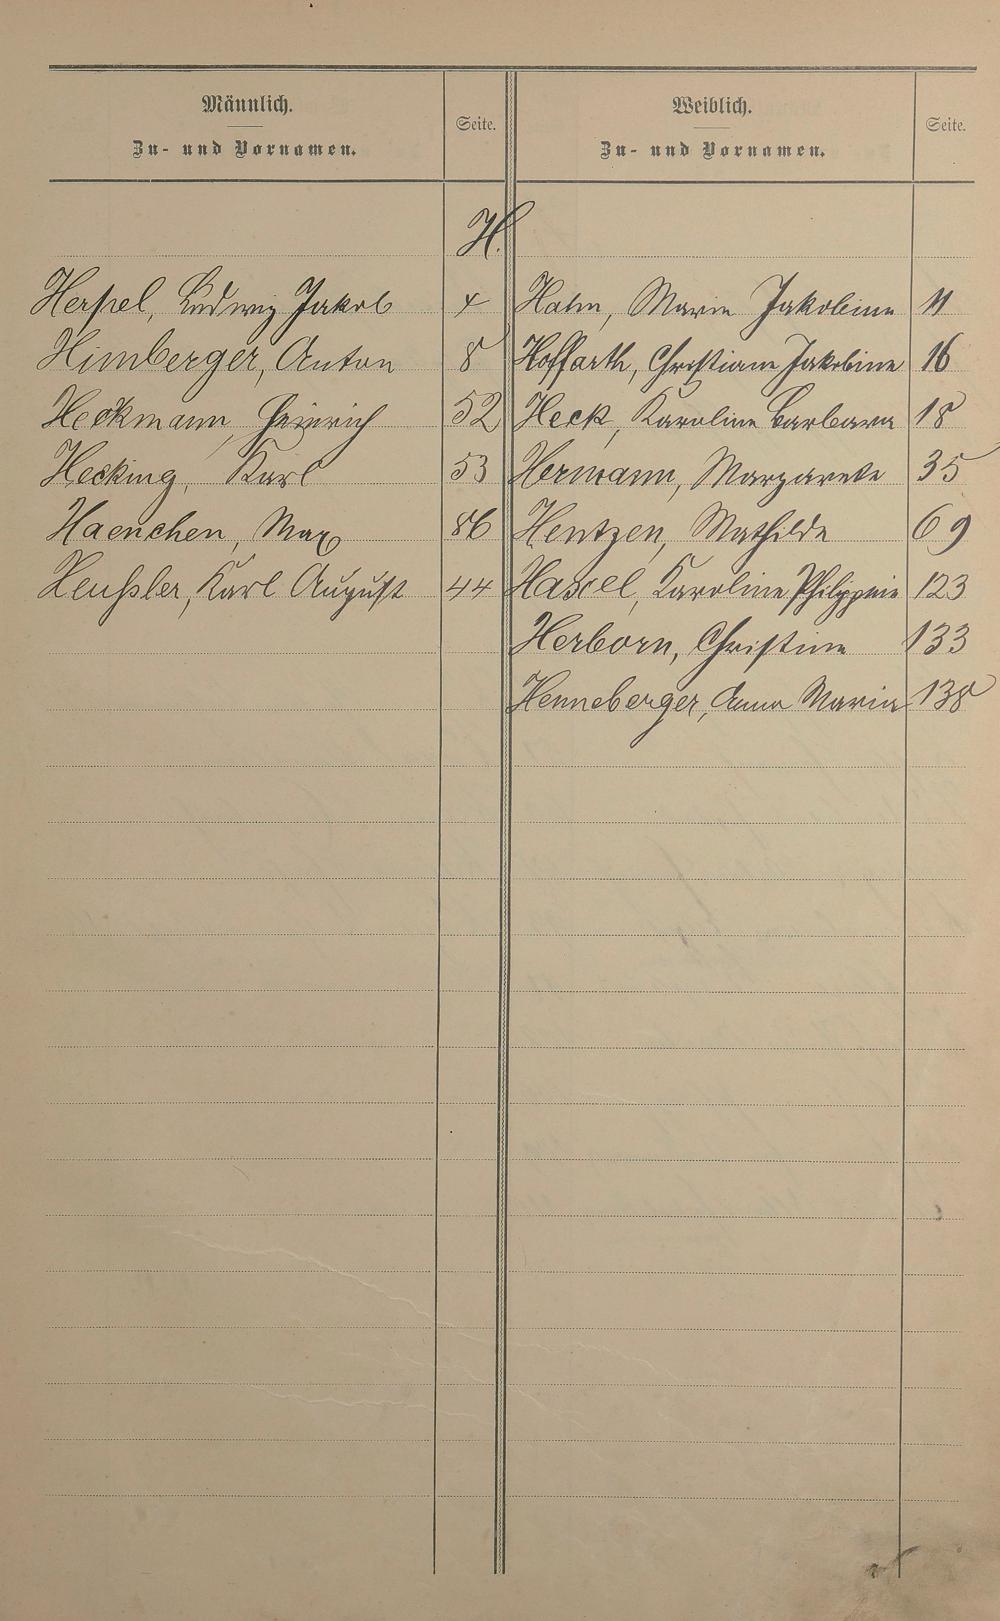 Männlich.
Zu- und Vornamen.
Seite.
Weiblich.
Zu- und Vornamen.
Seite.
H.
Herpel, Ludwig Jakob 4
Himberger, Anton 8
Heckmann, Heinrich 52
Hecking, Karl 53
Haenchen, Max 86
Heußler, Karl August 44
Hahn, Marie Jakobine 11
Hoffarth, Christiane Jakobine 16
Heck, Karoline Barbara 18
Hermann, Margarete 35
Hentzen, Mathilde 69
Hassel, Karoline Philippine 123
Herborn, Christine 133
Henneberger, Anna Maria 138